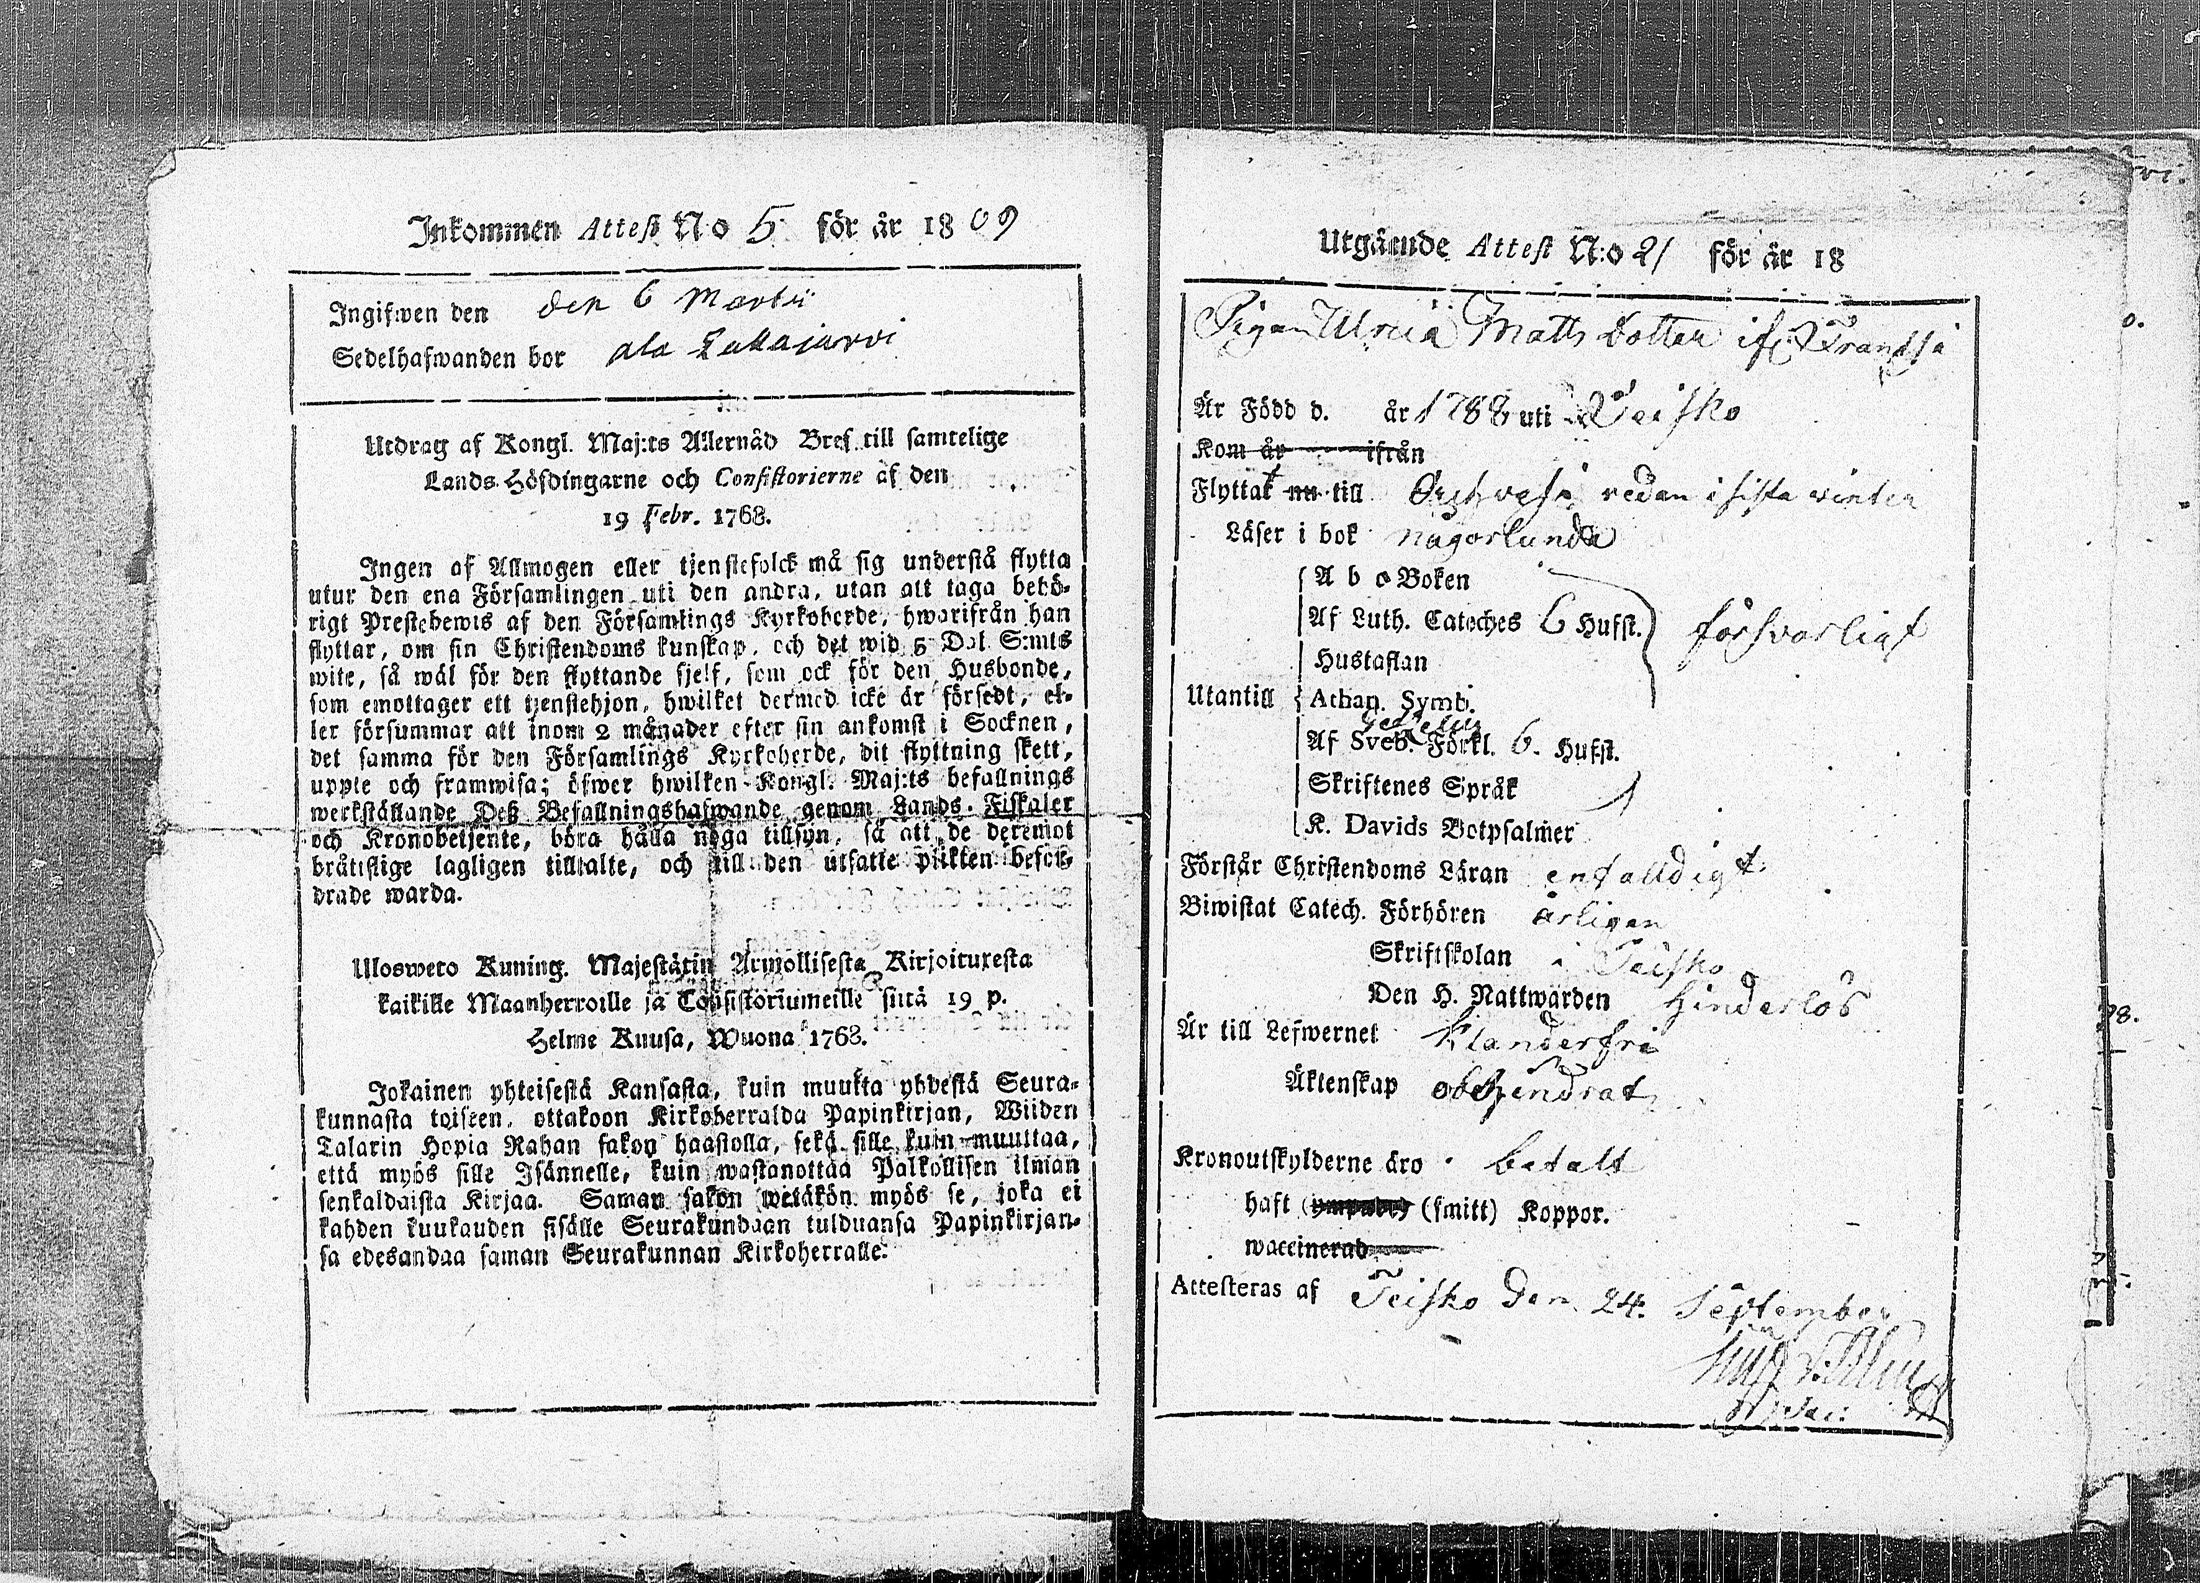 Inkommen Attest No 5 för år 1809
Ingifwen den den 6 Martii
Sedelhafwanden bor ala
Utdrag af Kongl. Maj:ts Allernåd Bref till samtelige
Lands Höfdingarne och Consistorierne af den
19 Febr. 1768.
Ingen af Allmogen eller tjenstefolck må sig understå flytta
utur den ena Församlingen uti den andra, utan att taga behö-
rigt Prestebewis af den Församlings Kyrkoherde, hwarifrån han
flyttar, om sin Christendoms kunskap, och det wid 5 Dal. S:mts
wite, så wäl för den flyttande sjelf, som ock för den Husbonde,
som emottager ett tjenstehjon, hwilket dermed icke är försedt, el-
ler försummar att inom 2 månader efter sin ankomst i Socknen,
det samma för den Församlings Kyrkoherde, dit flyttning skett,
uppte och framwisa; öfwer hwilken Kongl. Maj:ts befallnings
werkställande Deß Befallningshafwande genom Lands-Fiskaler
och Kronobetjente, böra hålla noga tillsyn, så att de deremot
bråttslige lagligen tilltalte, och till den utsatte plikten befor-
drade warda.
Ulosweto Kuning. Majestätin Armollisesta Kirjoituxesta
kaikille Maanherroille ja Consistoriumeille siitä 19 p.
Helme Kuusa, Wuona 1768.
Jokainen yhteisestä Kansasta, kuin muutta yhdestä Seura-
kunnasta toiseen, ottakoon Kirkoherralda Papinkirjan, Wiiden
Talarin Hopia Rahan sakon haastolla, sekä sille kuin muuttaa,
että myös sille Isännelle, kuin wastanottaa Palkollisen ilman
senkaldaista Kirjaa. Saman sakon wetäkön myös se, joka ei
kahden kuukauden sisälle Seurakundaan tulduansa Papinkirjan-
sa edesandaa saman Seurakunnan Kirkoherralle.
Utgående Attest N:o 21 för år 18
Pigan Ulrica Matts dotter ifr.
Är Född d. år 1788 uti Teisko
Kom år ifrån
Flyttat nu till redan i sista winter
Läser i bok någorlunda
A b c Boken
Af Luth. Cateches 6 Hufst. försvarligt
Hustaflan
Utantill Athan. Symb.
Af Sveb. Förkl. 6. Hufst.
Skriftenes Språk
K. Davids Botpsalmer
Förstår Christendoms Läran enfalldigt
Biwistat Catech. Förhören årligen
Skriftskolan i Teisko
Den H. Nattwarden hinderlös
Är till Lefwernet klanderfri
Äktenskap obehindrat
Kronoutskylderne äro betalt
haft (ympade) (smitt) Koppor.
waccinerad
Attesteras af Teisko den 24. September